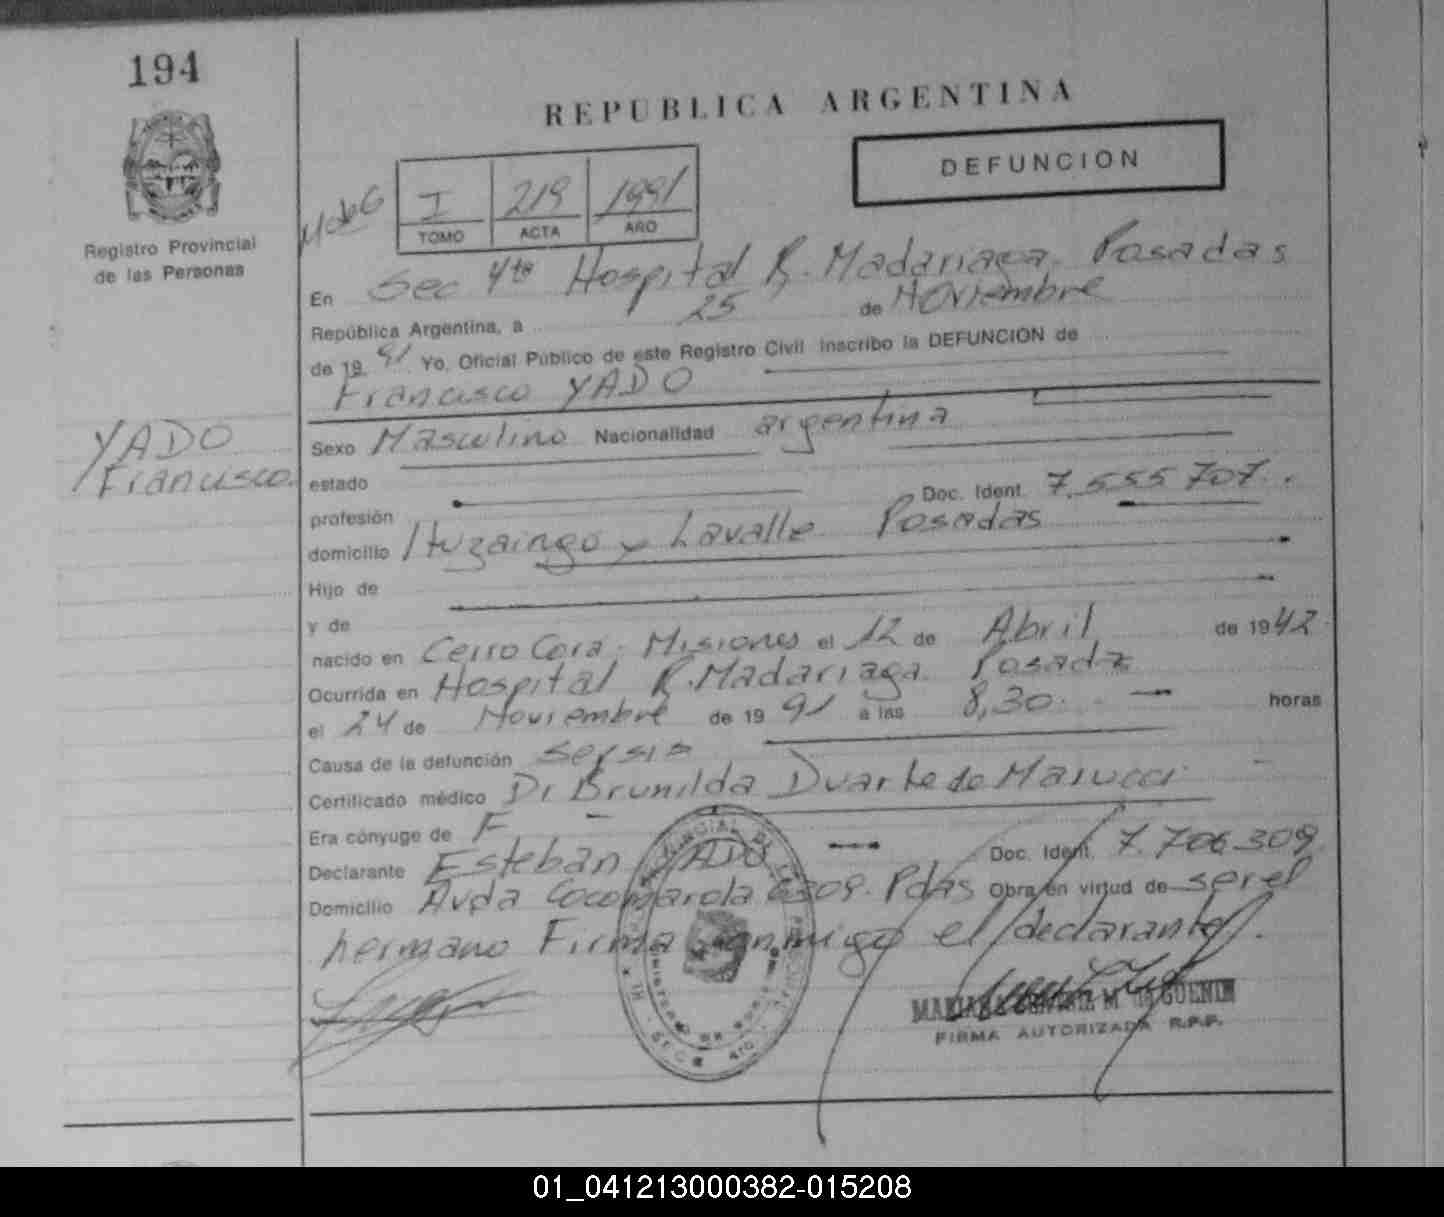 194
REPUBLICA ARGENTINA
DEFUNCION
I 219 1991
TOMO ACTA AÑO
Registro Provincial
de las Personas
En Sec 4ta Hospital R. Madariaga. Posadas
República Argentina, a 25 de Noviembre
de 19 91 Yo, Oficial Público de este Registro Civil inscribo la DEFUNCION de
Francisco YADO
YADO
Francisco.
Sexo Masculino Nacionalidad argentina
estado
profesión Doc. Ident. 7.555 707.
domicilio Ituzaingo y Lavalle Posadas
Hijo de
y de
nacido en Cerro Cora. Misiones el 12 de Abril de 1942
Ocurrida en Hospital R. Madariaga. Posadas
el 24 de Noviembre de 19 91 a las 8,30 horas
Causa de la defunción sepsis
Certificado médico Dr Brunilda Duarte de Marucci
Era cónyuge de
Declarante Esteban YADO Doc. Ident. 7.706.309
Domicilio Avda Cocomarola 6309. Pdas Obra en virtud de ser el
hermano Firma conmigo el declarante.
FIRMA AUTORIZADA R.P.P.
01_041213000382-015208